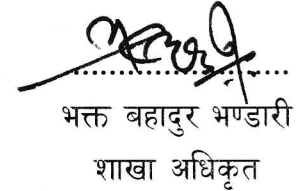 भक्त बहादुर भण्डारी
शाखा अधिकृत